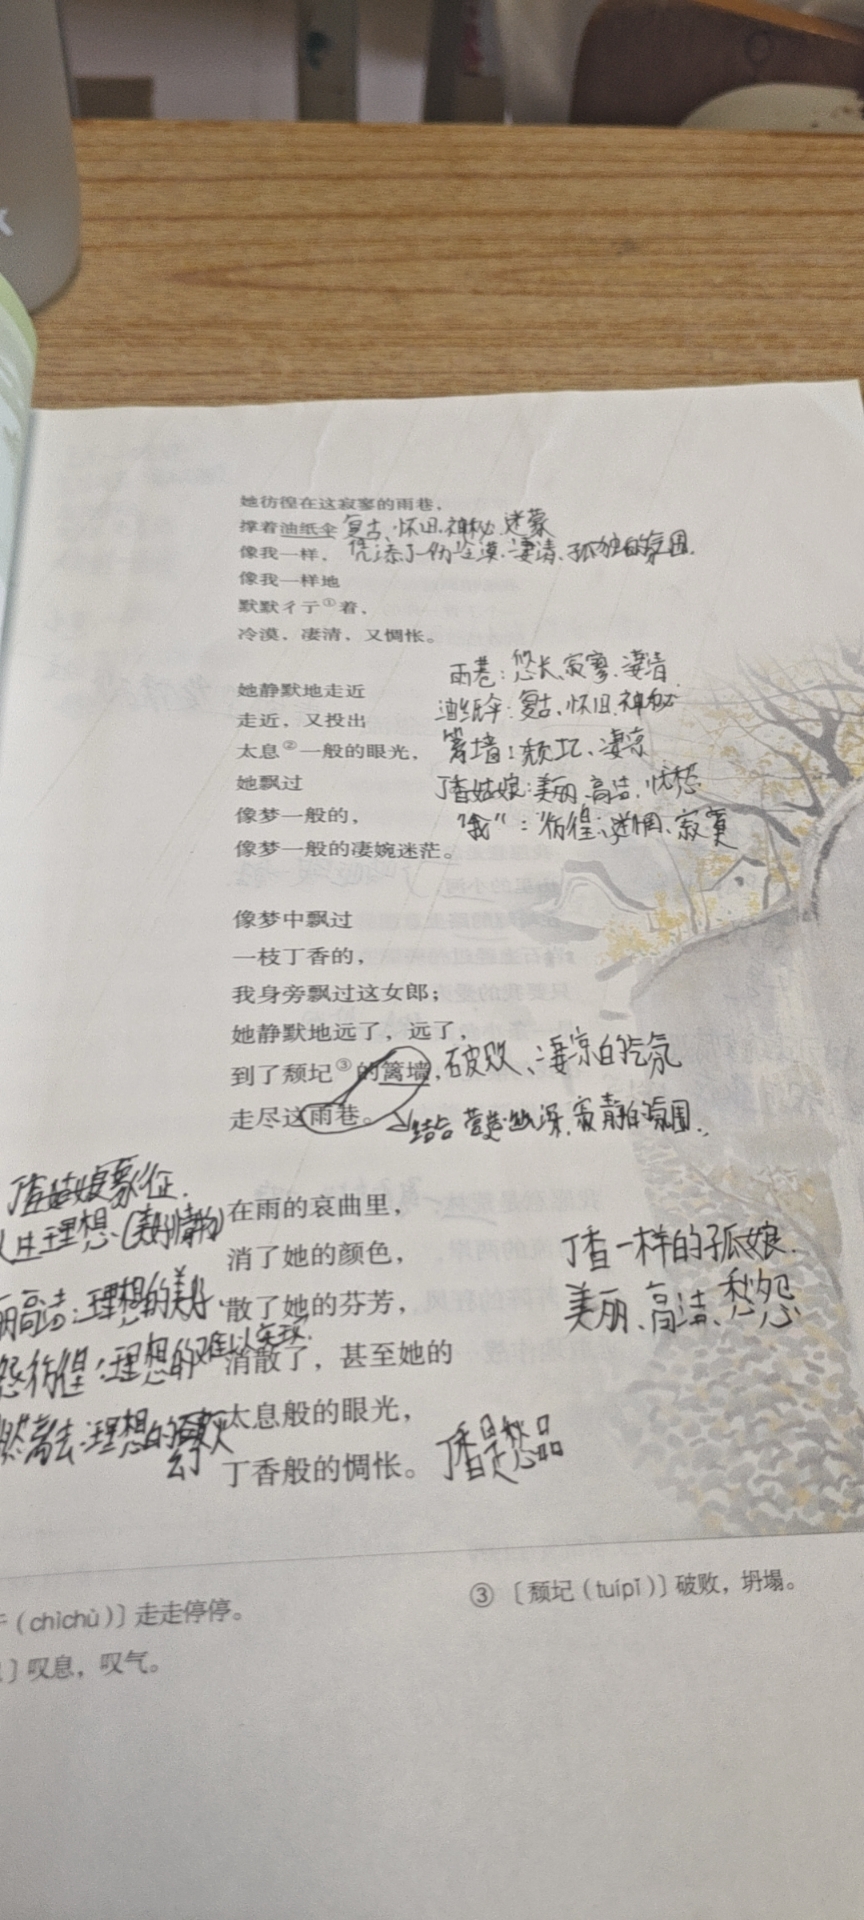 她彷徨在这寂寥的雨巷，
撑着油纸伞 复古、怀旧、神秘、迷蒙
像我一样， 凭添了一份冷漠、凄清、孤独的氛围.
像我一样地
默默彳亍①着，
冷漠，凄清，又惆怅。
雨巷：悠长、寂寥、凄清
她静默地走近
油纸伞：复古、怀旧、神秘
走近，又投出
篱墙：颓圮、凄凉
太息②一般的眼光，
丁香姑娘：美丽、高洁、忧愁
她飘过
"我"：彷徨、迷惘、寂寞
像梦一般的，
像梦一般的凄婉迷茫。
像梦中飘过
一枝丁香的，
我身旁飘过这女郎；
她静默地远了，远了，
到了颓圮③的篱墙， 破败、凄凉的气氛
走尽这雨巷。 结合 营造幽深、寂静的氛围.
丁香姑娘象征.
人生理想、(美好情物)
在雨的哀曲里，
消了她的颜色，
丁香一样的孤娘.
丽高洁：理想的美好.
散了她的芬芳，
美丽、高洁、愁怨
怨彷徨：理想的难以实现.
消散了，甚至她的
然离去：理想的幻灭
太息般的眼光，
丁香般的惆怅。 丁香是愁品
(chìchù)］走走停停。
］叹息，叹气。
③［颓圮（tuípǐ）］破败，坍塌。